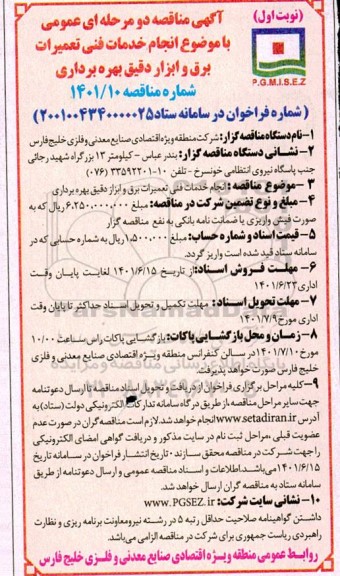 (نوبت اول)
آگهی مناقصه دو مرحله ای عمومی
با موضوع انجام خدمات فنی تعمیرات
برق و ابزار دقیق بهره برداری
شماره مناقصه ۱۴۰۱/۱۰
P.G.M.I.S.E.Z
(شماره فراخوان در سامانه ستاد ۲۰۰۱۰۰۴۳۴۰۰۰۰۰۲۵)
۱- نام دستگاه مناقصه گزار: شرکت منطقه ویژه اقتصادی صنایع معدنی و فلزی خلیج فارس
۲- نشانی دستگاه مناقصه گزار: بندر عباس - کیلومتر ۱۳ بزرگراه شهید رجائی
جنب پاسگاه نیروی انتظامی خونسرخ - تلفن ۱۰-۳۳۵۹۲۲۰۱ (۰۷۶)
۳- موضوع مناقصه: انجام خدمات فنی تعمیرات برق و ابزار دقیق بهره برداری
۴- مبلغ و نوع تضمین شرکت در مناقصه: مبلغ ۶.۲۵۰.۰۰۰.۰۰۰ ریال که به
صورت فیش واریزی یا ضمانت نامه بانکی به نفع مناقصه گزار
۵- قیمت اسناد و شماره حساب: مبلغ ۱.۵۰۰.۰۰۰ ریال به شماره حسابی که در
سامانه ستاد قید شده است واریز گردد.
۶- مهلت فروش اسناد: از تاریخ ۱۴۰۱/۶/۱۵ لغایت پایان وقت
اداری ۱۴۰۱/۶/۲۳
۷- مهلت تحویل اسناد: مهلت تکمیل و تحویل اسناد حداکثر تا پایان وقت
اداری مورخ ۱۴۰۱/۷/۹
۸- زمان و محل بازگشایی پاکات: بازگشایی پاکات راس ساعت ۱۰/۰۰
مورخ ۱۴۰۱/۷/۱۰ در سالن کنفرانس منطقه ویژه اقتصادی صنایع معدنی و فلزی
خلیج فارس صورت خواهد پذیرفت.
۹- کلیه مراحل برگزاری فراخوان از دریافت و تحویل اسناد مناقصه تا ارسال دعوتنامه
جهت سایر مراحل مناقصه از طریق درگاه سامانه تدارکات الکترونیکی دولت (ستاد) به
آدرس www.setadiran.ir انجام خواهد شد. لازم است مناقصه گران در صورت عدم
عضویت قبلی، مراحل ثبت نام در سایت مذکور و دریافت گواهی امضای الکترونیکی
را جهت شرکت در مناقصه محقق سازند. تاریخ انتشار فراخوان در سامانه تاریخ
۱۴۰۱/۶/۱۵ می باشد. اطلاعات و اسناد مناقصه عمومی و ارسال دعوتنامه از طریق
سامانه ستاد به مناقصه گران ارسال خواهد شد.
۱۰- نشانی سایت شرکت: www.PGSEZ.ir
داشتن گواهینامه صلاحیت حداقل رتبه ۵ در رشته نیرو معاونت برنامه ریزی و نظارت
راهبردی ریاست جمهوری برای شرکت در مناقصه الزامی می باشد.
روابط عمومی منطقه ویژه اقتصادی صنایع معدنی و فلزی خلیج فارس